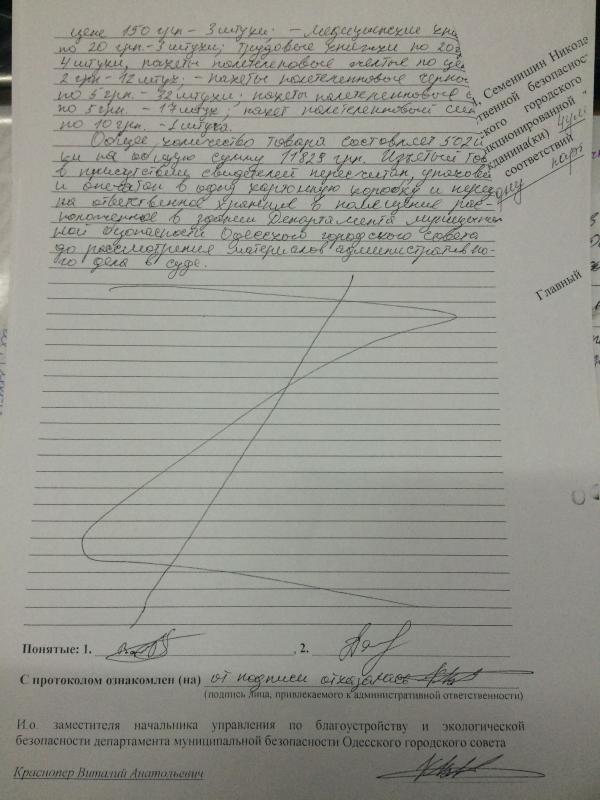 цене 150 грн - 3 штуки; - Медицинские кни
по 20 грн.- 3 штуки; трудовые книжки по 20
4 штуки, пакеты полетеленовые желтые по це
2 грн - 12 штук; - пакеты полетеленновые черно
по 5 грн. - 32 штуки; пакеты полетеленновые
по 5 грн. - 17 штук; пакет полетеленновый син
по 10 грн. - 1 штука.
Общее количество товара составляет 502
ки на общую сумму 11829 грн. Изъятый тов
в присутствии свидетелей пересчитан, упакова
и опечатан в одну картонную коробку и перед
на ответственное хранение в помещение рас-
положенное в здании Департамента муниципаль
ной безопасности Одесского городского совета
до рассмотрения материалов административно-
го дела в суде.
, Семенишин Никола
ственной безопаснос
ского городского
кционированной "
жданина(ки)
соответствий
Главный
Понятые: 1. , 2.
С протоколом ознакомлен (на) от подписи отказалась
(подпись лица, привлекаемого к административной ответственности)
И.о. заместителя начальника управления по благоустройству и экологической
безопасности департамента муниципальной безопасности Одесского городского совета
Краснопер Виталий Анатольевич